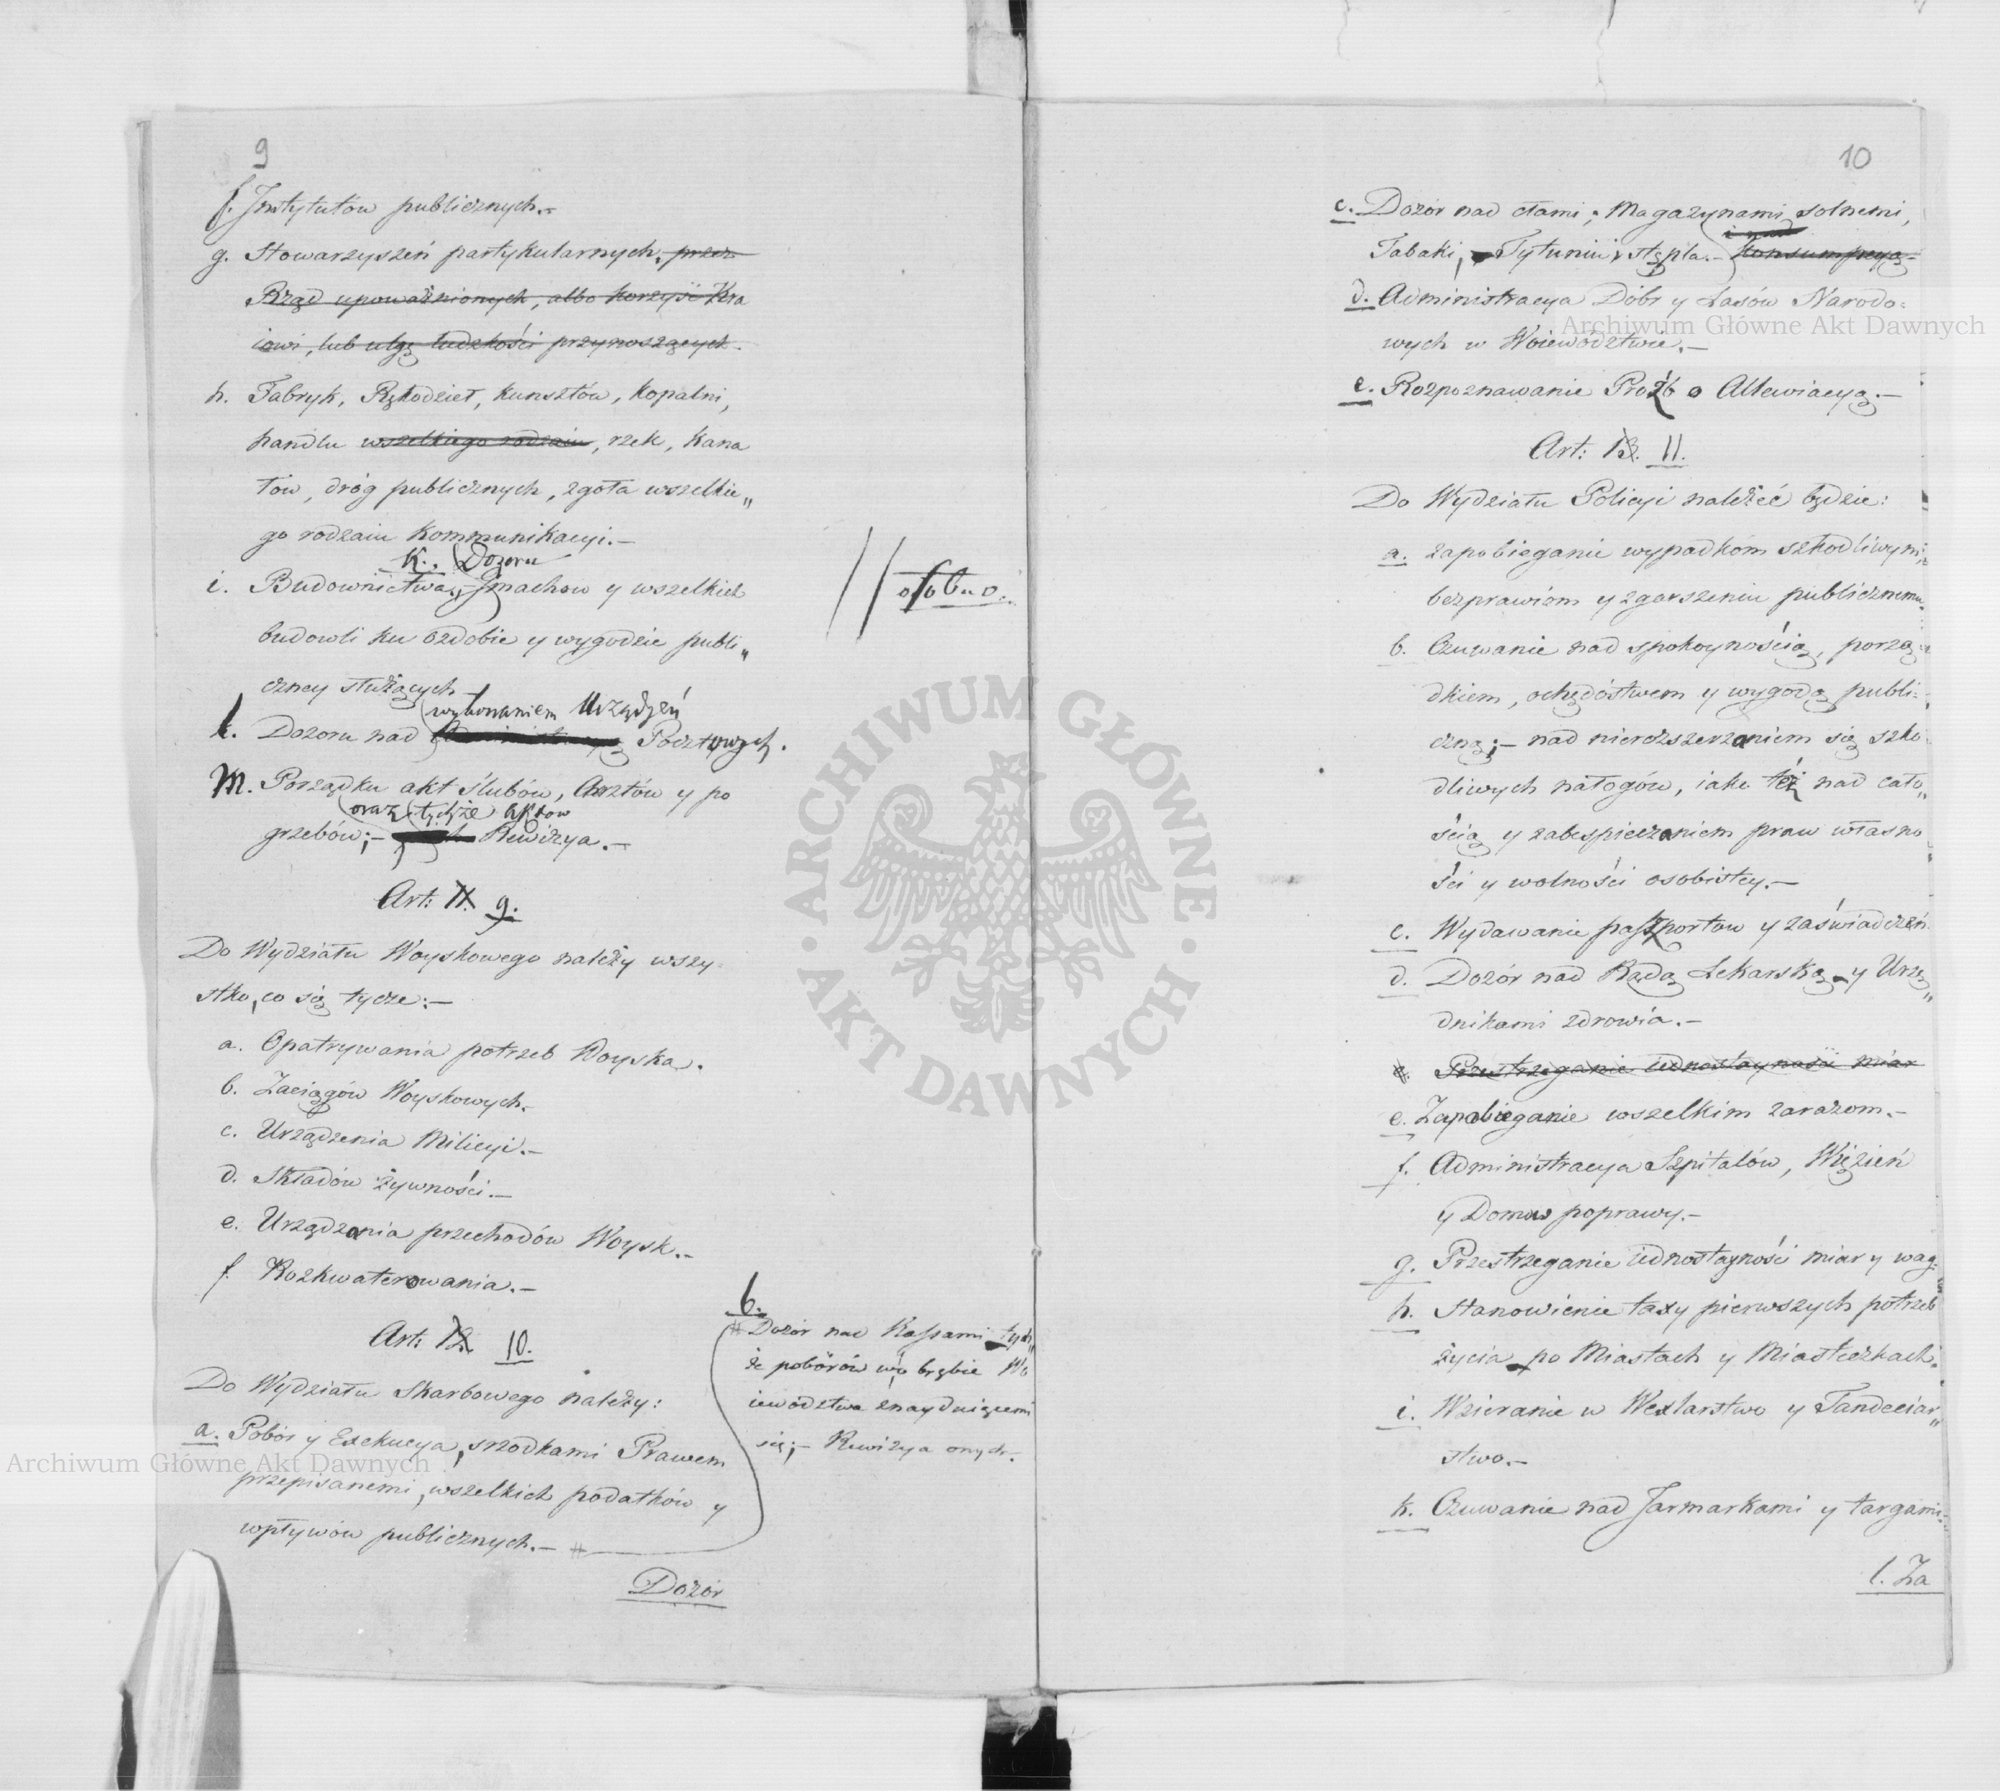 9
f. Instytutów publicznych.-
g. Stowarzyszeń partykularnych, przez
Rząd upoważnionych, albo korzyść Kra
iowi, lub ulgę ludzkości przynoszących.
h. Fabryk, Rękodzieł, kunsztów, kopalni,
handlu wszelkiego rodzaiu, rzek, kana
łów, dróg publicznych, zgoła wszelkie„
go rodzaiu kommunikacyi.-
K., Dozoru
i. Budownictwa, Gmachow y wszelkich
osobno.
budowli ku ozdobie y wygodzie publi„
czney służących
wykonaniem Urządzeń
l. Dozoru nad Pocztowych.
M. Porządku akt ślubów, Chrztów y po
oraz tychże aktow
grzebów;- Rewizya.-
Art: 11. 9.
Do Wydziału Woyskowego należy wszy
stko, co się tycze:-
a. Opatrywania potrzeb Woyska.
b. Zaciągów Woyskowych.
c. Urządzenia Milicyi.-
d. Składów żywności.-
e. Urządzania przechodów Woysk.-
f. Rozkwaterowania.-
Art: 12. 10.
Do Wydziału Skarbowego należy:
a. Pobór y Exekucya, srzodkami Prawem
przepisanemi, wszelkich podatków y
wpływów publicznych.- #
Dozór
b.
# Dozór nad Kassami tych„
że poborów w obrębie Wo
iewództwa znayduiącemi
się;- Rewizya onych.
Archiwum Główne Akt Dawnych
10
c. Dozór nad cłami, Magazynami solnemi,
i nad
Tabaki, Tytuniu, stępla.- konsumpcyą-
d. Administracya Dóbr y Lasów Narodo=
wych w Woiewództwie.-
Archiwum Główne Akt Dawnych
e. Rozpoznawanie Proźb o Allewiacyą.-
Art: 13. 11.
Do Wydziału Policyi należeć będzie:
a. zapobieganie wypadkom szkodliwym,
bezprawiom y zgorszeniu publicznemu
b. Czuwanie nad spokoynością, porzą
dkiem, ochędóstwem y wygodą publi=
czną;- nad nierozszerzaniem się szko
dliwych nałogów, iako też nad cało„
ścią y zabespieczaniem praw własno
ści y wolności osobistey.-
c. Wydawanie paszportow y zaświadczeń
d. Dozór nad Radą Lekarską y Urzę„
dnikami zdrowia.-
e. Przestrzeganie iednostayności miar
e. Zapobieganie wszelkim zarazom.-
f. Administracya Szpitalów, Więzień
y Domow poprawy.-
g. Przestrzeganie iednostayności miar y wag
h. Stanowienie taxy pierwszych potrzeb
życia po Miastach y Miasteczkach.
i. Wzieranie w Wexlarstwo y Tandeciar„
stwo.-
k. Czuwanie nad Jarmarkami y targami
l. Za
ARCHIWUM GŁÓWNE · AKT DAWNYCH ·